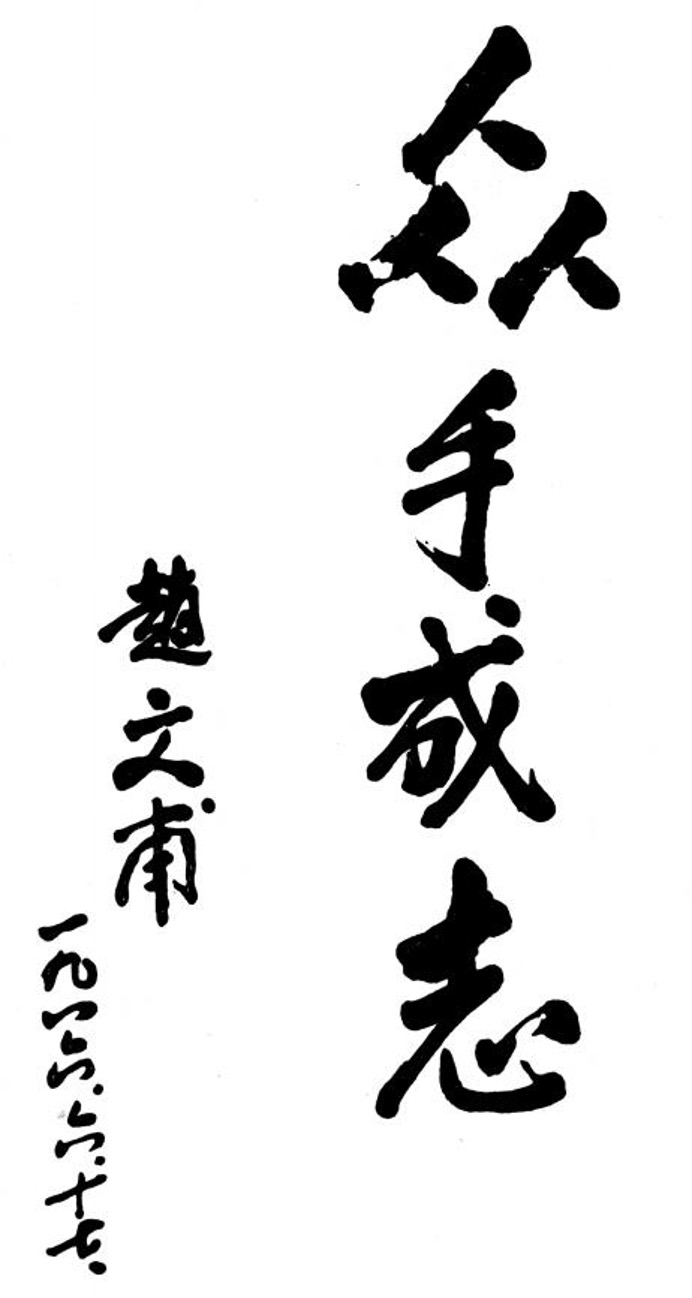 众手成志
趙文甫
一九八六.六.十七.